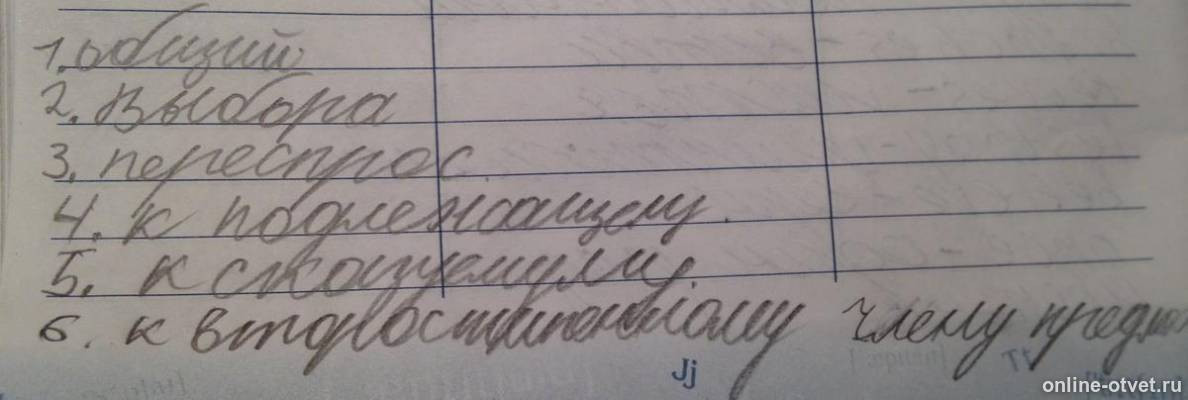 1. общий
2. Выбора
3. переспрос.
4. к подлежащему.
5. к сказуемому.
6. к второстепенному члену предлож
Jj
online-otvet.ru